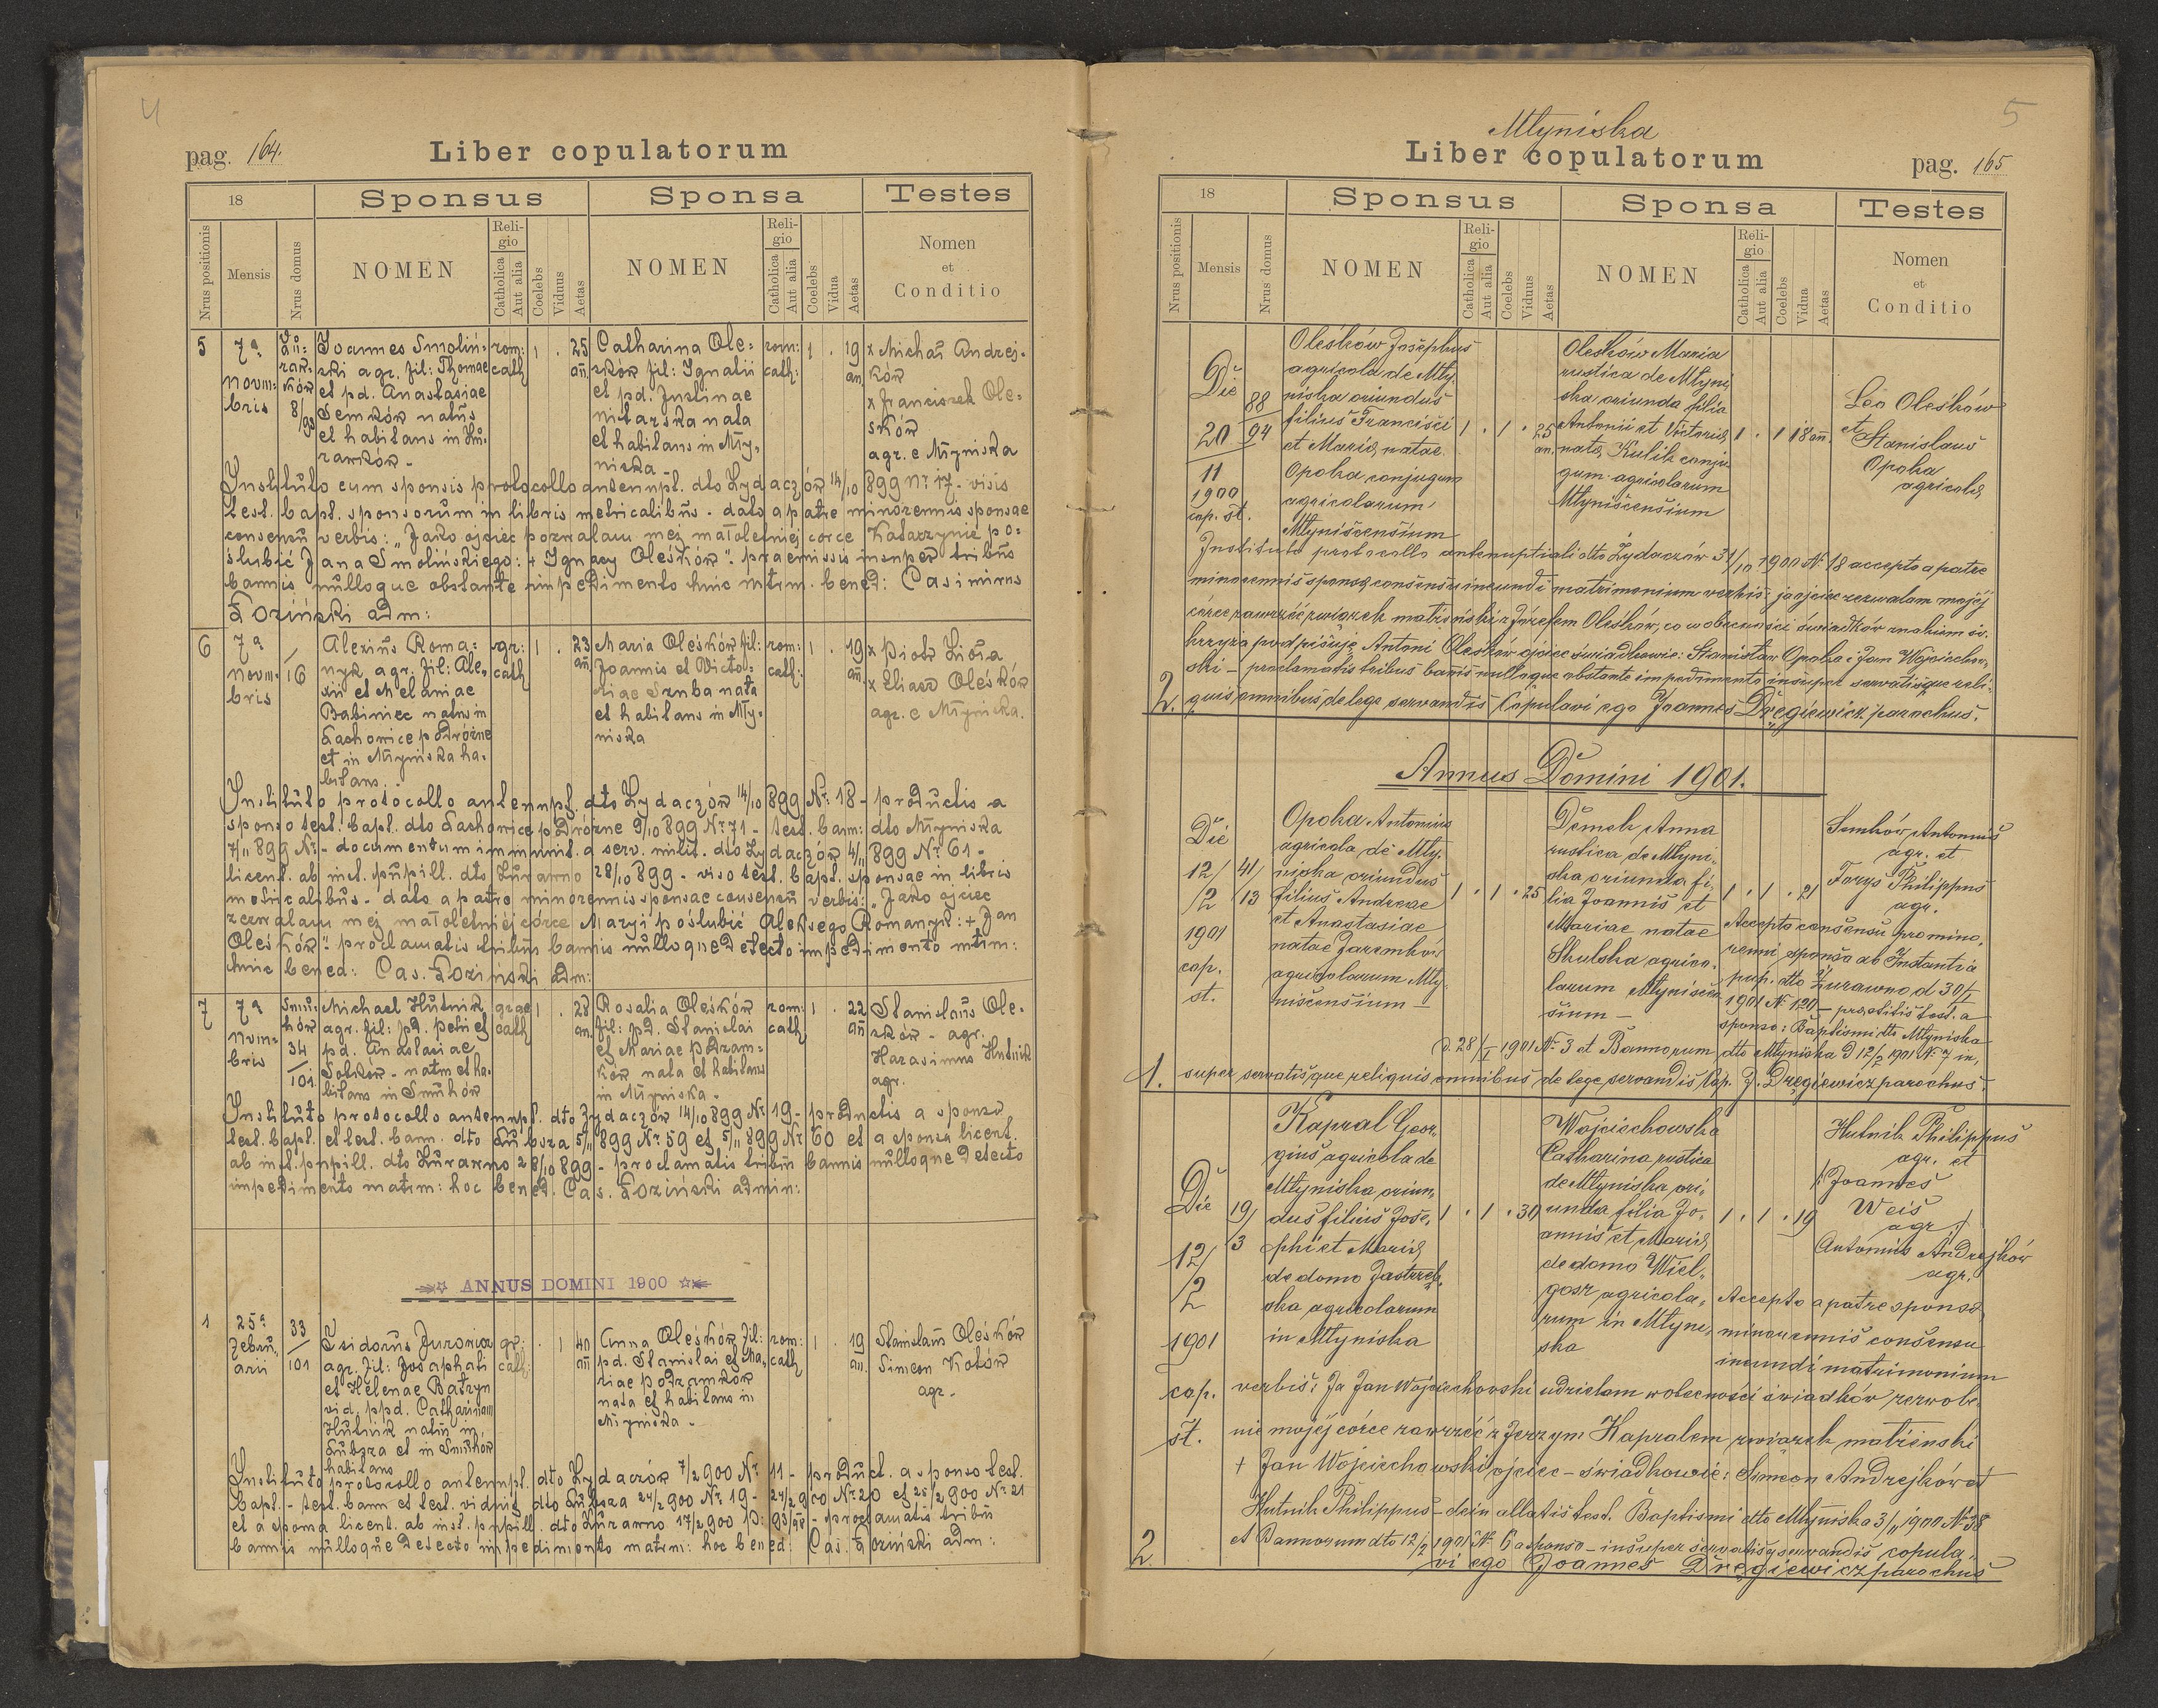 4
pag. 164.
Liber copulatorum
18
Sponsus
Sponsa
Testes
Nrus positionis
Mensis
Nrus domus
NOMEN
Religio
Catholica
Aut alia
Coelebs
Viduus
Aetas
NOMEN
Religio
Catholica
Aut alia
Coelebs
Vidua
Aetas
Nomen
et
Conditio
5
7ª
novm=
bris
8/93
Joannes Smoliń=
ski agr. fil: Thomae
et pd. Anastasiae
Semków natus
et habitans in Żu=
rawków -
rom:
cath
1 . 25
añ.
Catharina Ole=
śków fil: Ignatii
et pd. Justinae
nitarska nata
et habitans in Mły=
niska -
rom:
cath:
1 . 19
an.
x Michał Andrej-
ków
x Franciszek Ole=
śków
agr. e Młyniska
Instituto cum sponsis protocollo antennpt. dto Żydaczów 14/10 899 Nr 17 - visis
test. bapt. sponsorum in libris metricalibus - dato a patre minorennis sponsae
consensu verbis: „Jako ojciec pozwalam mej małoletniej córce Katarzynie po=
ślubić Jana Smolińskiego: + Ignacy Oleśków". praemissis insuper tribus
bannis nulloque obstante impedimento hunc mtrm. bened: Casimirus
Łoziński adm:
6
7ª
novm=
bris
16
Alexius Roma=
nyk agr. fil: Ale=
xii et Melaniae
Babiniec natus in
Lachowice podróżne
et in Młyniska ha=
bitans.
gr:
cath
1 . 23
añ.
Maria Oleśków fil:
Joannis et Victo=
riae Sruba nata
et habitans in Mły=
niska
rom:
cath:
1 . 19
añ.
x Piotr Lioła
x Eliasz Oleśków
agr. e Młyniska.
Instituto protocollo antennpt. dto Żydaczów 14/10 899 Nr: 18 - productis a
sponso test. bapt. dto Lachowice podróżne 9/10 899 Nr 71 - test. bann: dto Młyniska
7/11 899 Nr - documentum immunit. a serv. milit. dto Żydaczów 4/11 899 Nr 61 -
licent. ab inst. pupill. dto Żurawno 28/10 899 - viso test. bapt. sponsae in libris
metricalibus - dato a patre minorennis sponsae consensu verbis: „Jako ojciec
zezwalam mej małoletniej córce Maryi poślubić Aleksego Romanyk: + Jan
Oleśków". proclamatis tribus bannis nulloque detecto impedimento mtrm:
hunc bened: Cas. Łoziński adm:
7
7ª
novm=
bris
Smu=
chów
34
101
Michael Hutnik
agr. fil: pd. Petri et
pd. Anastasiae
Sotków - natus et ha=
bitans in Smuhów
graec
cath
1 . 28
an.
Rosalia Oleśków
fil: pd. Stanislai
et Mariae Podzam=
ków nata et habitans
in Młyniska -
rom:
cath
1 . 22
añ
Stanislaus Ole=
śków - agr.
Harasimus Hutnik
agr.
Instituto protocollo antennpt. dto Żydaczów 14/10 899 Nr 19 - productis a sponso
test. bapt. et test. bann. dto Lubsza 5/11 899 Nr 59 et 5/11 899 Nr 60 et a sponsa licent.
ab inst. pupill. dto Żurawno 28/10 899 - proclamatis tribus bannis nulloque detecto
impedimento matrm: hoc bened. Cas. Łoziński admin:
ANNUS DOMINI 1900
1
25ª
Febru=
arii
33
101
Isidorus Jurowicz
agr. fil: Josaphati
et Helenae Batryn
vid. ppd. Catharinam
Hutnik natus in
Lubsza et in Smuhów
habitans
gr:
cath:
. 1 40
añ
Anna Oleśków fil:
pd. Stanislai et Ma=
riae Podzamków
nata et habitans in
Młyniska -
rom:
cath
1 . 19
an.
Stanislaus Oleśków
Simeon Kotów
agr -
Instituto protocollo antennpt. dto Żydaczów 7/2 900 Nr 11 - product. a sponso test.
bapt. - test. bann et test. viduit. dto Lubsza 24/2 900 Nr 19 - 24/2 900 Nr 20 et 25/2 900 Nr 21
et a sponsa licent. ab inst. pupill. dto Żurawno 17/2 900 P: 93/98 - proclamatis tribus
bannis nulloque detecto impedimento matrm: hoc bened: Cas. Łoziński adm:
5
Młyniska
Liber copulatorum
pag. 165
18
Sponsus
Sponsa
Testes
Nrus positionis
Mensis
Nrus domus
NOMEN
Religio
Catholica
Aut alia
Coelebs
Viduus
Aetas
NOMEN
Religio
Catholica
Aut alia
Coelebs
Vidua
Aetas
Nomen
et
Conditio
Die
20
11
1900
cop. st.
88
94
Oleśków Josephus
agricola de Mły,
niska oriundus
filius Francisci
et Mariæ natae
Opoka conjugum
agricolarum
Młyniscensium
1 . 1 . 25
an.
Oleśków Maria
rustica de Młyni,
ska oriunda filia
Antonii et Victoriæ
natæ Kulik conju
gum agricolarum
Młyniscensium
1 . 1 18 añ.
Leo Oleśków
et Stanislaus
Opoka
agricolæ
Instituto protocollo antenuptiali dto Żydaczów 31/10 1900 N. 18 accepto a patre
minorennis sponsæ consensu ineundi matrimonium verbis: ja ojciec zezwalam mojéj
córce zawrzéć związek małżeński z Józefem Oleśków, co w obecności świadków znakiem św.
krzyża podpisuję Antoni Oleśków ojciec świadkowie: Stanisław Opoka i Jan Wojciechow,
ski - proclamatis tribus bannis nulloque obstante impedimento insuper servatisque reli,
2. quis omnibus de lege servandis Copulavi ego Joannes Dręgiewicz parochus.
Annus Domini 1901.
Die
12/
/2
1901
cop.
st.
41/
/13
Opoka Antonius
agricola de Mły,
niska oriundus
filius Andreae
et Anastasiae
natae Jaremków
agricolarum Mły,
niscensium -
1 . 1 . 25
Demek Anna
rustica de Młyni,
ska oriunda fi,
lia Joannis et
Mariae natae
Skulska agrico,
larum Młyniscen
sium -
1 . 1 . 21
Semków Antonius
agr. et
Forys Philippus
agr.
Accepto consensu pro mino,
renni sponsa ab Instantia
pup. dto Żurawno d 30/I
1901 N. 120 - praestitis test. a
sponso: Baptismi dto Młyniska
d. 28/I 1901 N. 3 et Bannorum dto Młyniska d 12/2 1901 N. 7 in,
1. super servatisque reliquis omnibus de lege servandis Cop. J. Dręgiewicz parochus.
Die
12/
/2
1901
cop.
st.
19/
3
Kapral Geor,
gius agricola de
Młyniska oriun,
dus filius Jose,
phi et Mariæ
de domo Jastrzęb,
ska agricolarum
in Młyniska
1 . 1 . 30
Wojciechowska
Catharina rustica
de Młyniska ori,
unda filia Jo,
annis et Mariæ
de domo Wiel,
gosz agricola,
rum in Młyni,
ska
1 . 1 . 19
Hutnik Philippus
agr. et
Joannes
Weis
agr.
Antonius Andrejków
agr.
Accepto a patre sponsæ
minorennis consensu
ineundi matrimonium
verbis: Ja Jan Wojciechowski udzielam w obecności świadków zezwole,
nie mojéj córce zawrzéć z Jerzym Kapralem związek małżeński
+ Jan Wojciechowski ojciec - świadkowie: Simeon Andrejków et
Hutnik Philippus - dein allatis test. Baptismi dto Młyniska 3/11 1900 N. 38
et Bannorum dto 12/2 1901 N. 6 a sponso - insuper servatis servandis copula,
2 vi ego Joannes Dręgiewicz parochus